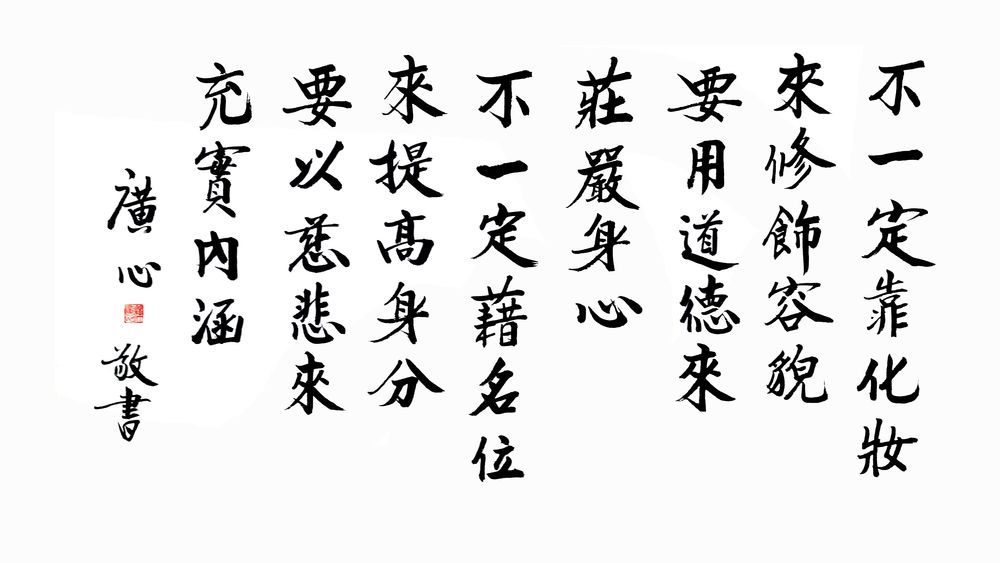 不一定靠化妝
來修飾容貌
要用道德來
莊嚴身心
不一定藉名位
來提高身分
要以慈悲來
充實內涵
廣心
敬書